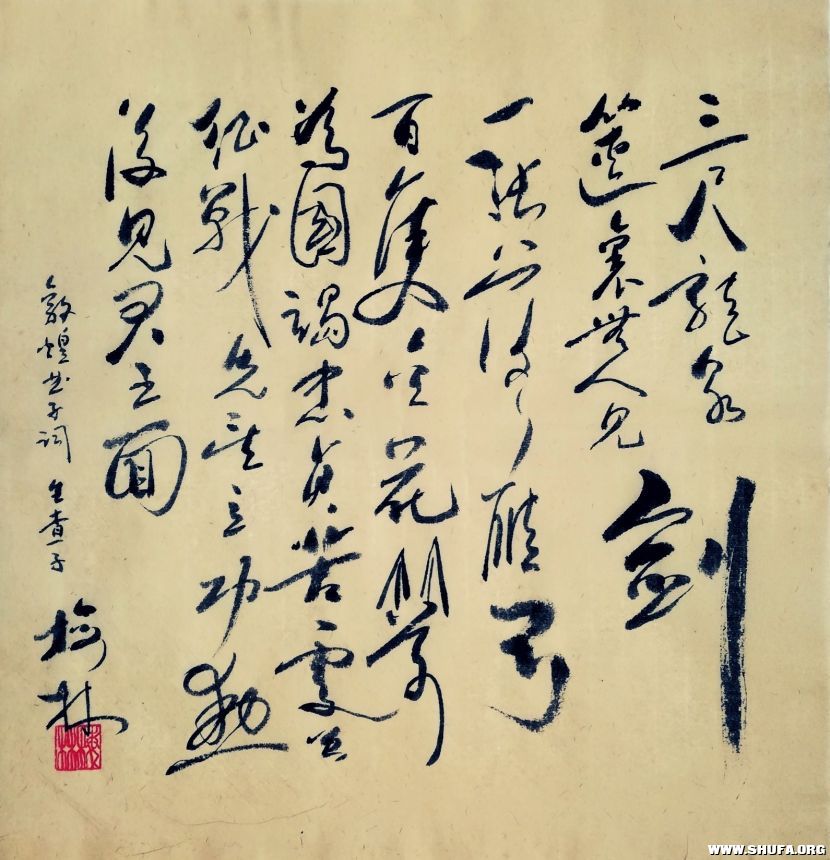 三尺龍泉劍
篋裏無人見
一張落雁弓
百隻金花箭
為國竭忠貞苦處曾
征戰先望立功勳
後見君王面
敦煌曲子詞 生查子
林
WWW.SHUFA.ORG